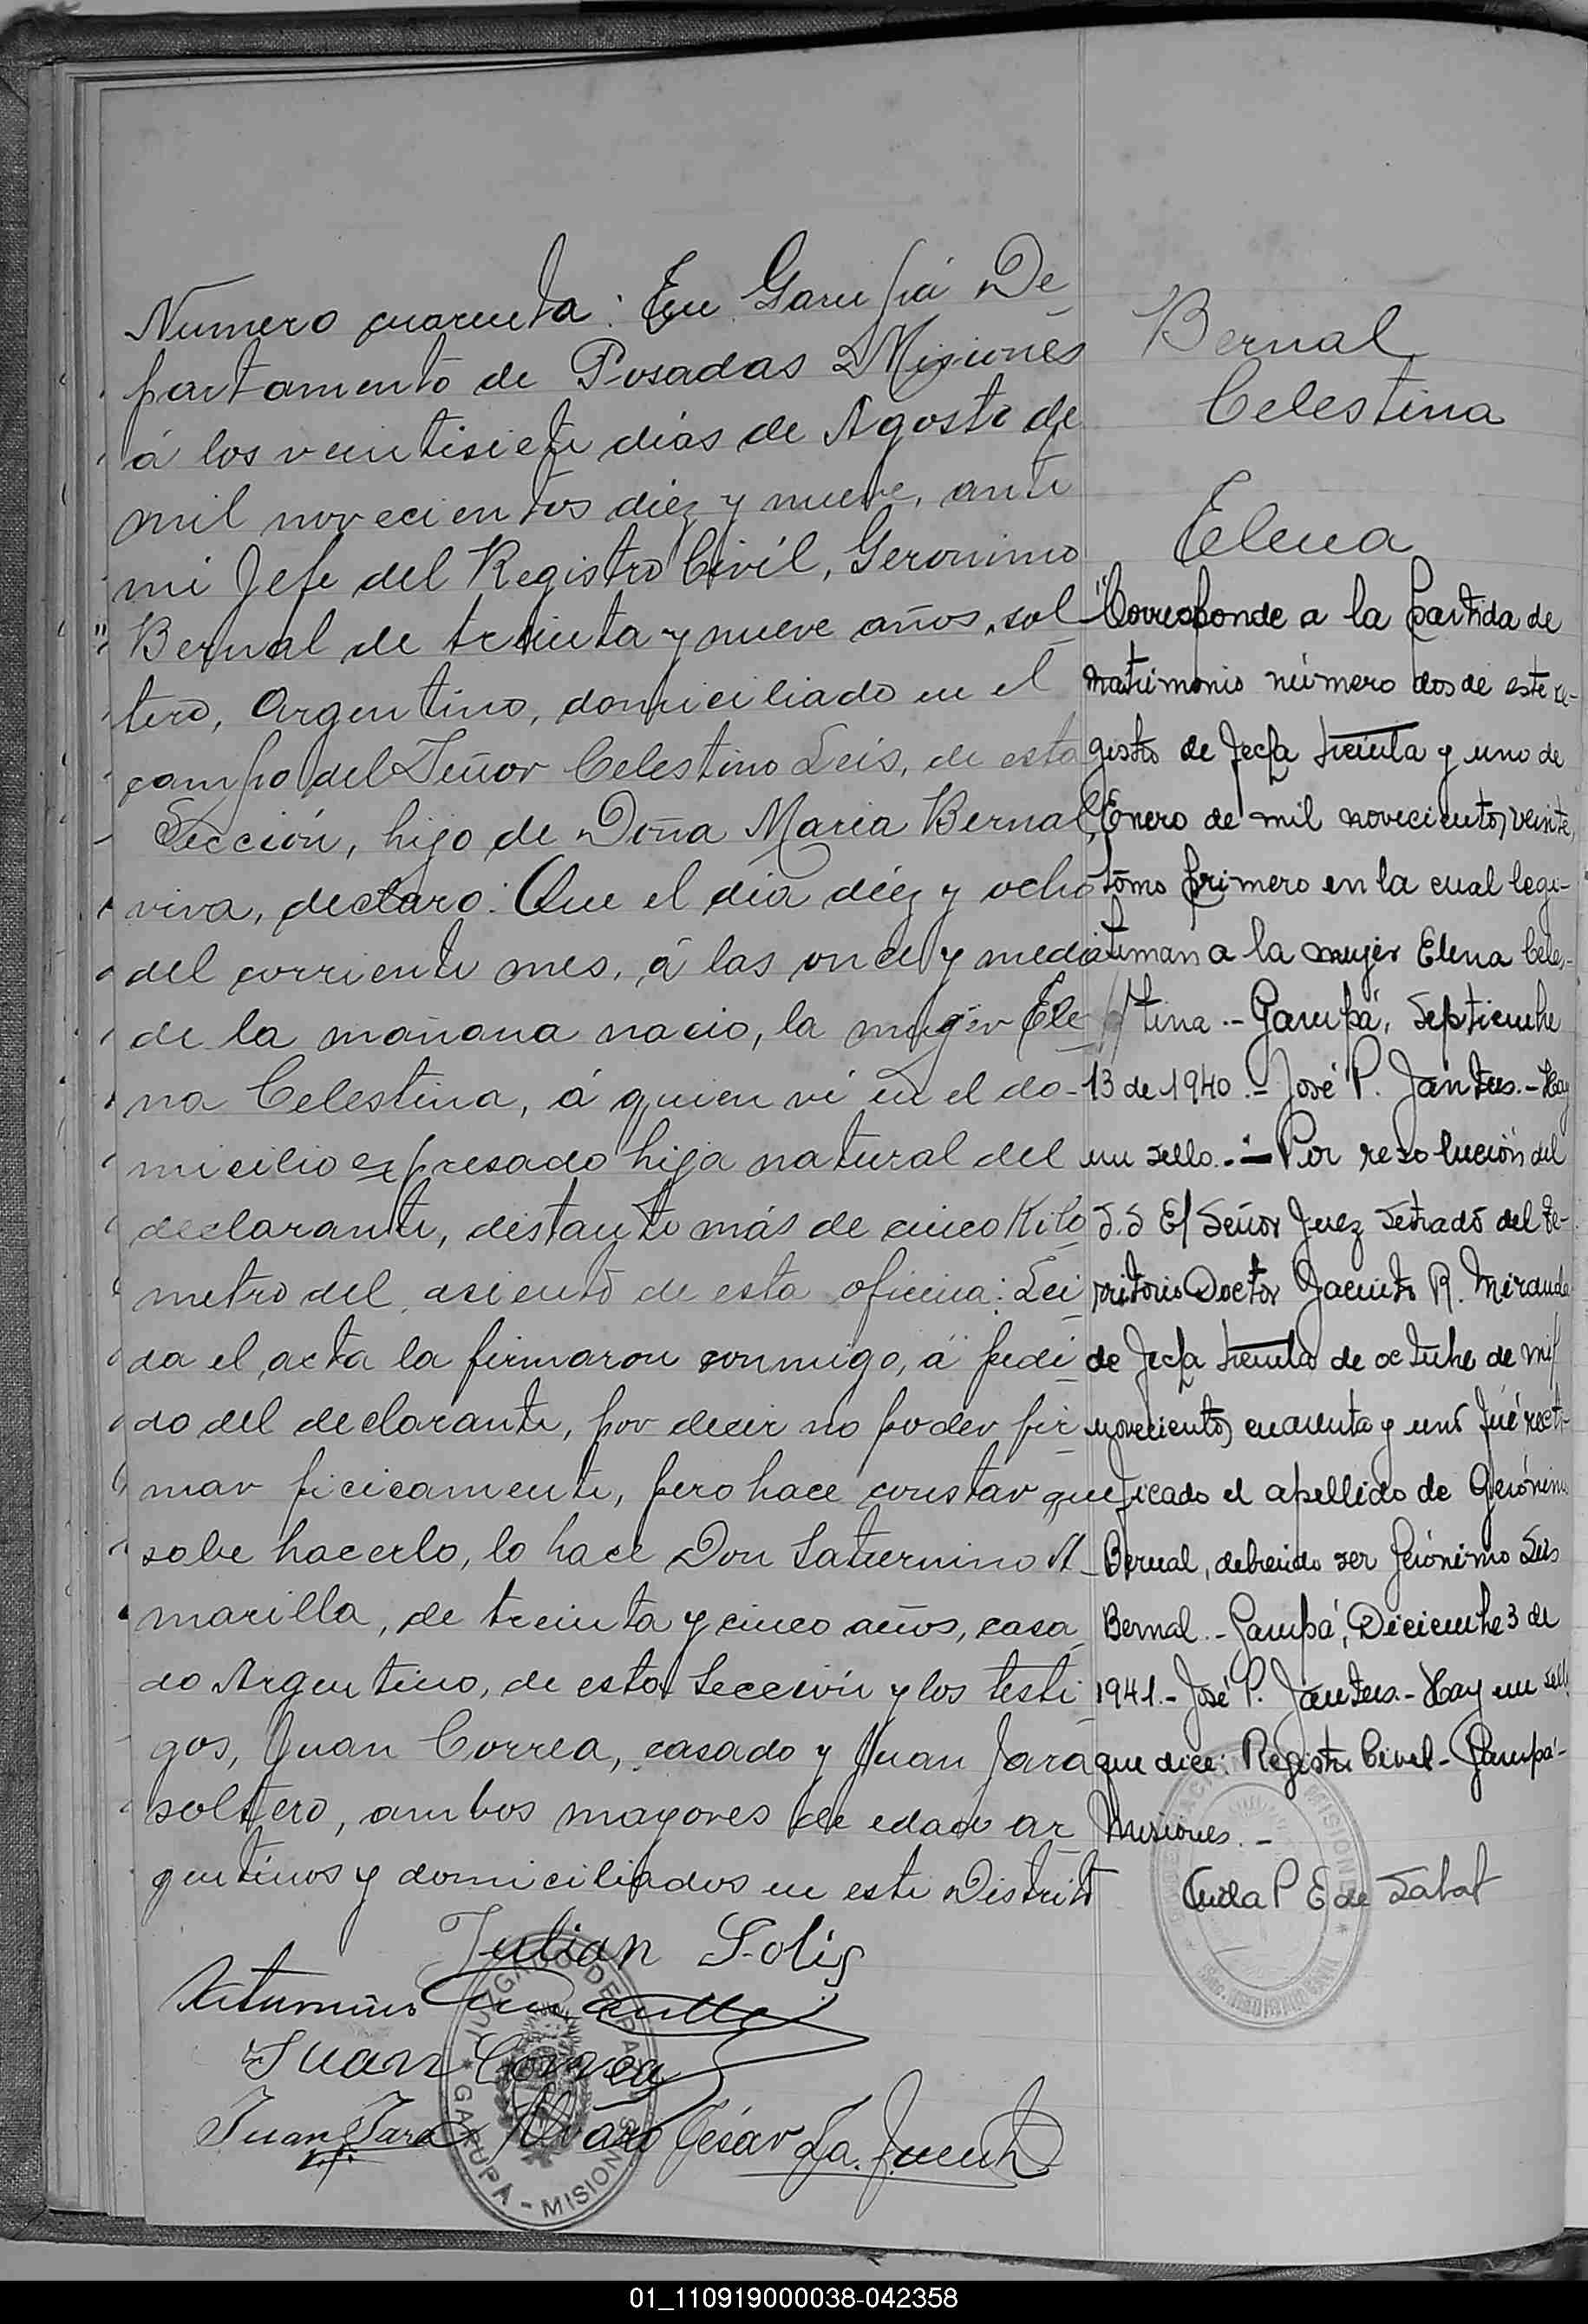 Numero cuarenta: En Garupá De
partamento de Posadas Misiones
á los veintisiete días de Agosto de
mil novecientos diez y nueve, ante
mi Jefe del Registro Civíl, Geronimo
Bernal de treinta y nueve años, sol
tero, Argentino, domiciliado en el
campo del Señor Celestino Leis, de esta
Sección, hijo de Doña Maria Bernal,
viva, declaro: Que el día diéz y ocho
del corriente mes, á las once y media
de la mañana nacio, la mugér Ele
na Celestina, á quien ví en el do-
micilio expresado hija natural del
declarante, distante más de cinco Kilo
metro del asiento de esta oficina: Lei
da el acta la firmaron conmigo, á pedi
do del declarante, por decir no poder fir
mar ficicamente, pero hace constar que
sabe hacerlo, lo hace Don Saturnino A
marilla, de treinta y cinco años, casa
do Argentino, de esta Sección y los testi
gos, Juan Correa, casado y Juan Jara
soltero, ambos mayores de edad ar
gentinos y domiciliados en este Distrito
Julian Solis
Saturnino Amarilla
Juan Correa
Juan Jara Alvaro César La Fuente
JUZGADO DE PAZ
GARUPÁ - MISIONES
Bernal
Celestina
Elena
"Corresponde a la partida de
matrimonio número dos de este re-
gistro de fecha treinta y uno de
Enero de mil novecientos veinte,
tomo primero en la cual legi-
timan a la mujer Elena Celes-
tina.- Garupá, Septiembre
13 de 1940.- José P. Jantus.- Hay
un sello.- Por resolución del
S.S El Señor Juez Letrado del Te-
rritorio Doctor Jacinto R. Miranda
de fecha treinta de octubre de mil
novecientos cuarenta y uno fué recti-
ficado el apellido de Gerónimo
Bernal, debiendo ser Jerónimo Leis
Bernal.- Garupá, Diciembre 3 de
1941.- José P. Jantus.- Hay un sello
que dice: Registro Civil - Garupá -
Misiones.-
P E de Sabat
MISIONES
01_110919000038-042358